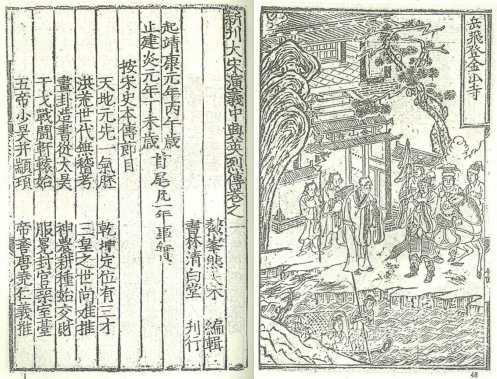 岳飛登金山寺
新刊大宋演義中興英烈傳卷之一
鰲峯熊大木 編輯
書林清白堂 刊行
起靖康元年丙午歲
止建炎元年丁未歲 首尾凡一年事實
按宋史本傳節目
天地元先一氣胚 乾坤定位有三才
洪荒世代無稽考 三皇之世尚难推
畫卦造書從太昊 神農耕種始交財
干戈戰鬪軒轅始 服冕封官築室臺
五帝少昊并顓頊 帝嚳唐堯仁義推
1
48